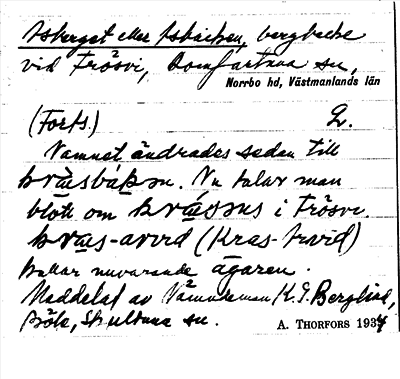 Asberget eller Asbacken, bergbacke
vid Frösvi, Romfartuna sn,
Norrbo hd, Västmanlands län
(Forts.) 2.
Namnet ändrades sedan till
Nu talar man
blott om i Frösvi.
(Kras-Arvid)
kallar nuvarande ägaren.
Meddelat av Nämndeman K. G. Berglind,
Skultuna sn.
A. THORFORS 1934